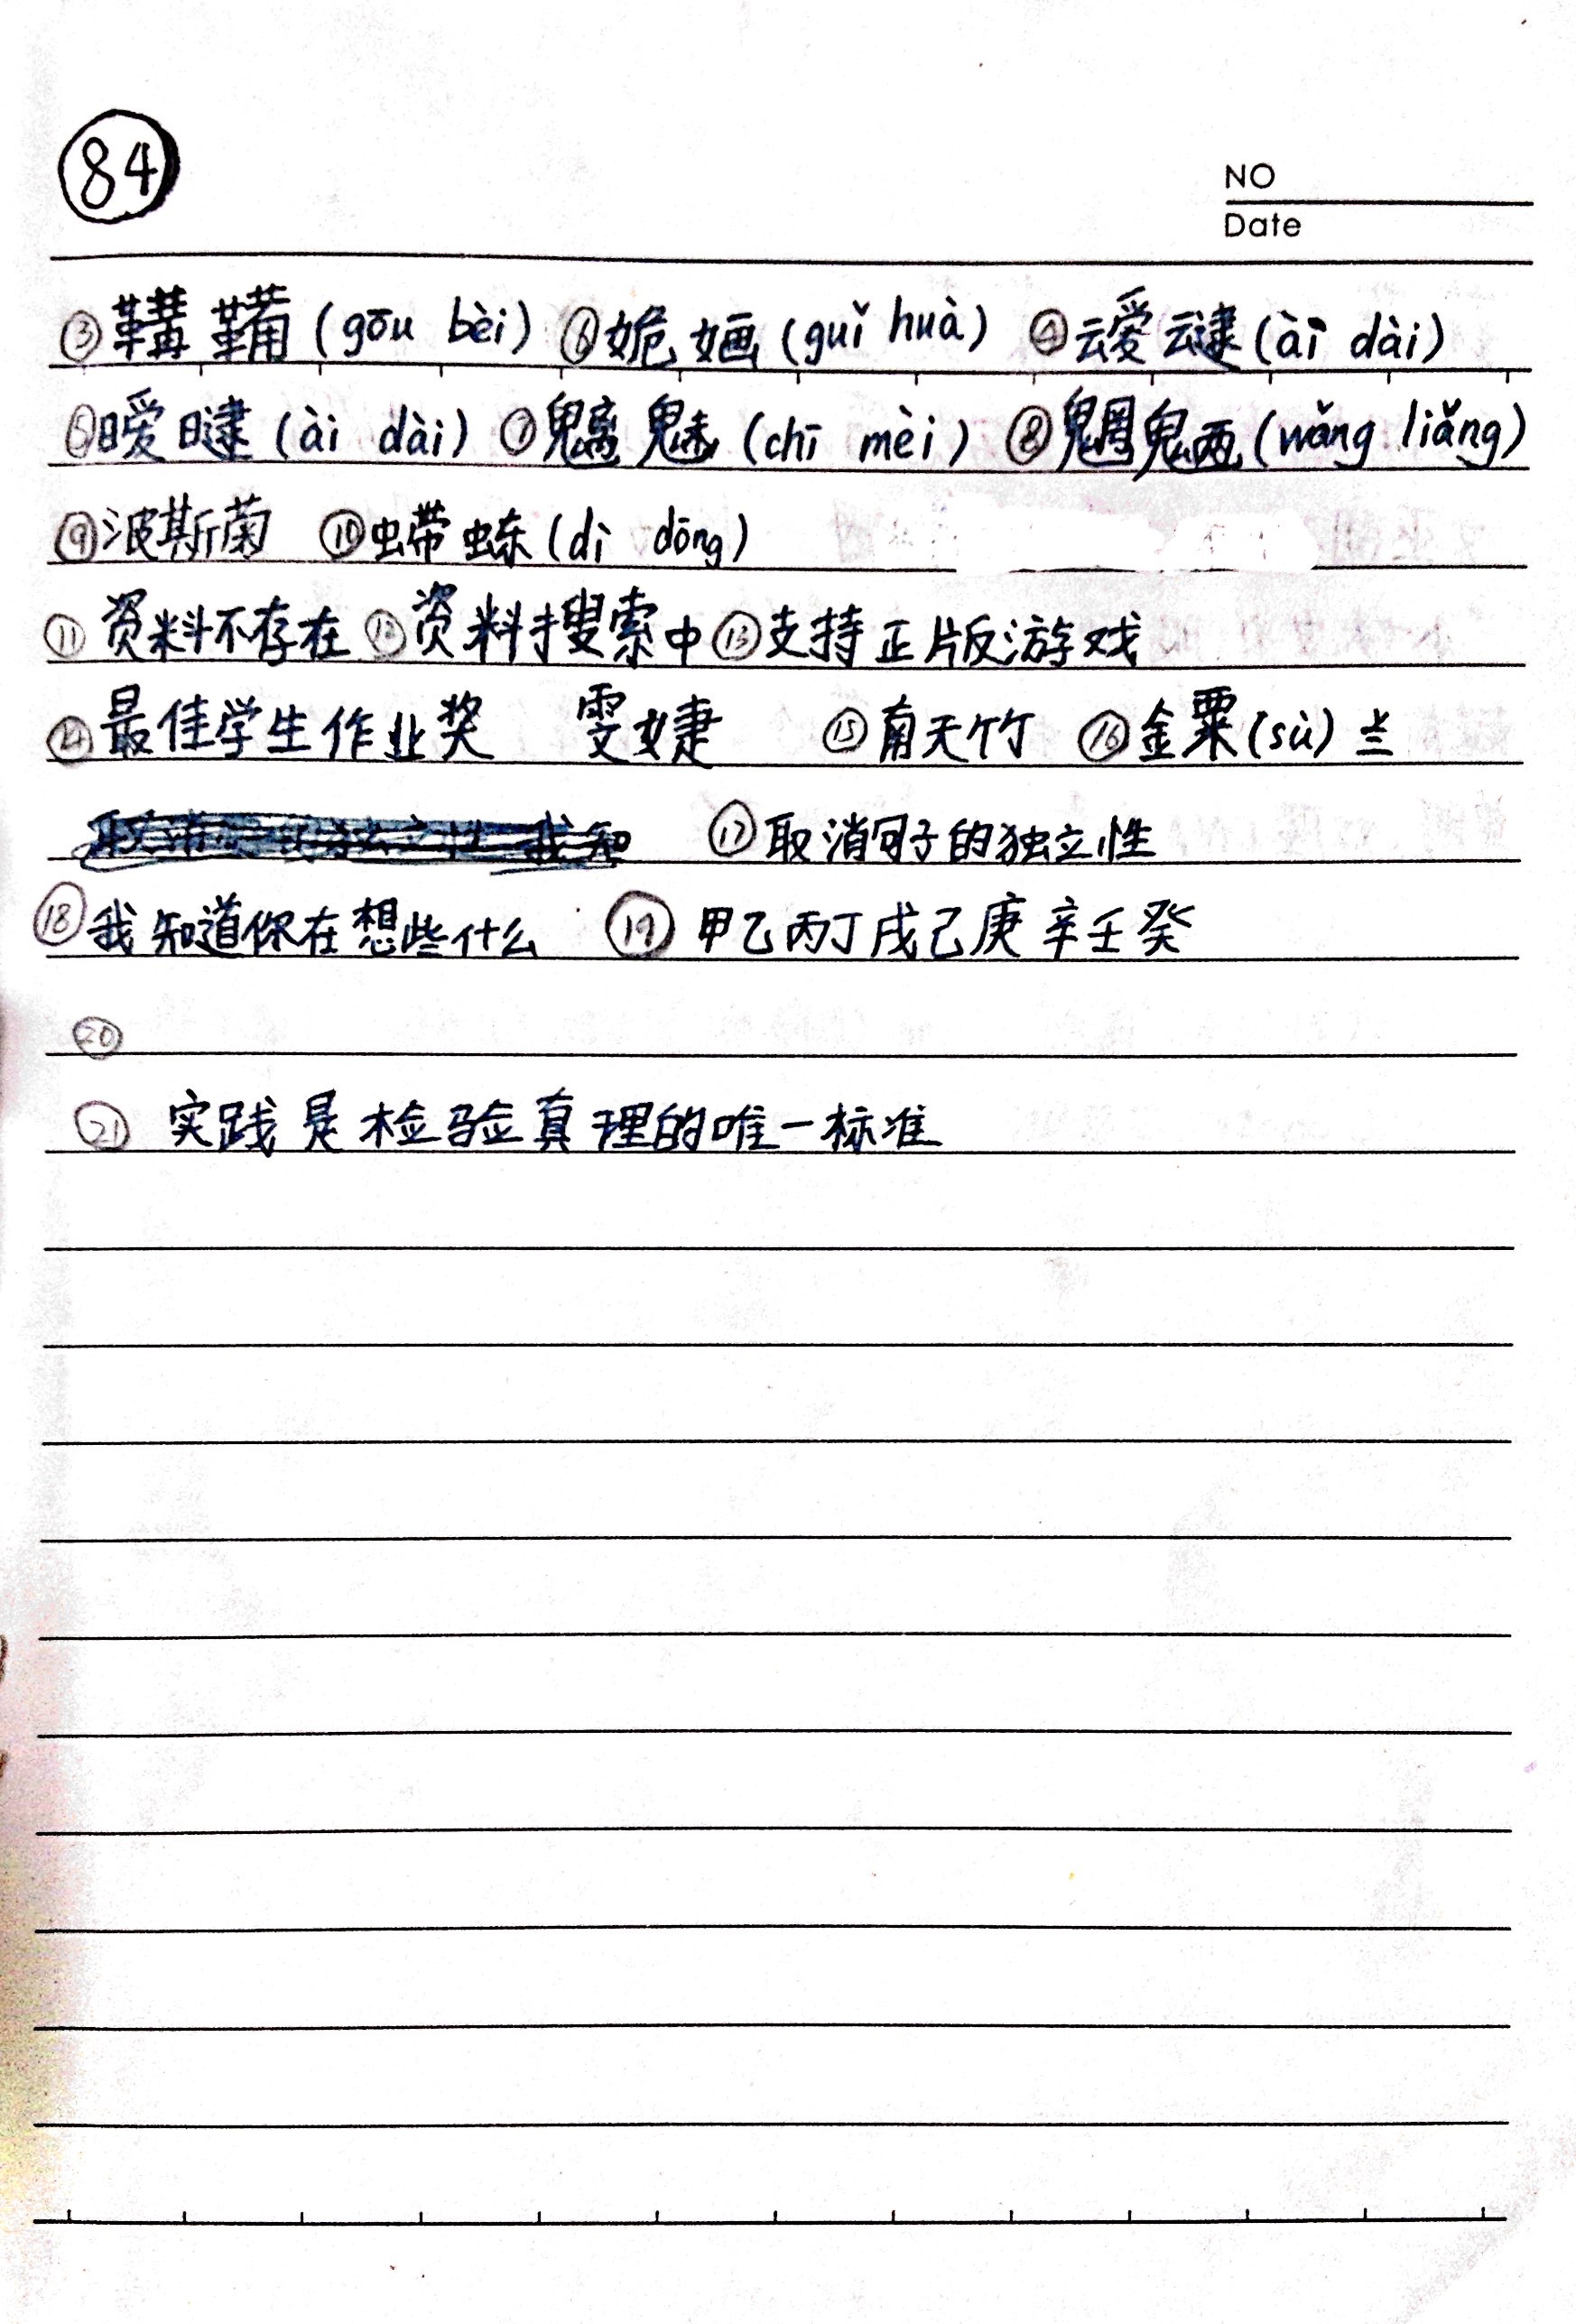 84
NO
Date
③鞲鞴(gōu bèi) ⑥姽婳(guǐ huà) ④叆叇(ài dài)
⑤暧曃(ài dài) ⑦魑魅(chī mèi) ⑧魍魉(wǎng liǎng)
⑨波斯菊 ⑩螮蝀(dì dōng)
⑪资料不存在 ⑫资料搜索中 ⑬支持正版游戏
⑭最佳学生作业奖 雯婕 ⑮南天竹 ⑯金粟(sù)兰
⑰取消句子的独立性
⑱我知道你在想些什么 ⑲甲乙丙丁戊己庚辛壬癸
⑳
㉑ 实践是检验真理的唯一标准